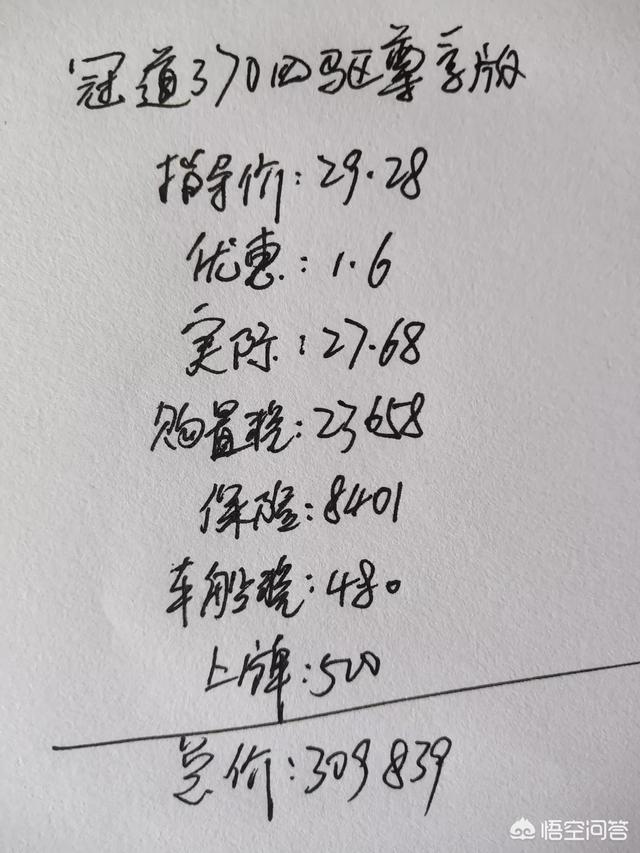 冠道370四驱尊享版
指导价:29.28
优惠:1.6
实际:27.68
购置税:23658
保险:8401
车船税:480
上牌:500
总价:309839
悟空问答